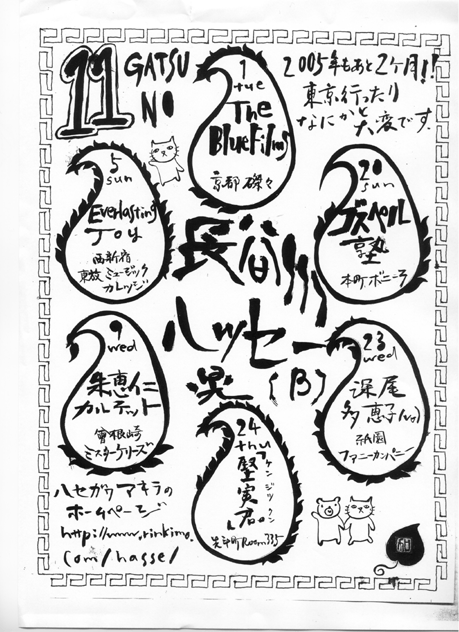 11 GATSU
NO
2005年もあと2ヶ月!!
東京行ったり
なにかと大変です.
1
tue
The
BlueFilms
京都 磔々
5
sun
Everlasting
Joy
西新宿
東放ミュージック
カレッジ
20
sun
ゴスペル
塾
本町ボニーろ
長谷川
ハッセー
晃(B)
9
wed
朱恵仁
カルテット
曾根崎
ミスターケリーズ
23
wed
深尾
多恵子(vo)
祇園
ファニーカンパニー
24
thu
堅実君。
ケンジツクン
先斗町Room335
ハセガワアキラの
ホームページ
http://www.rinkimo.
com/hasse/